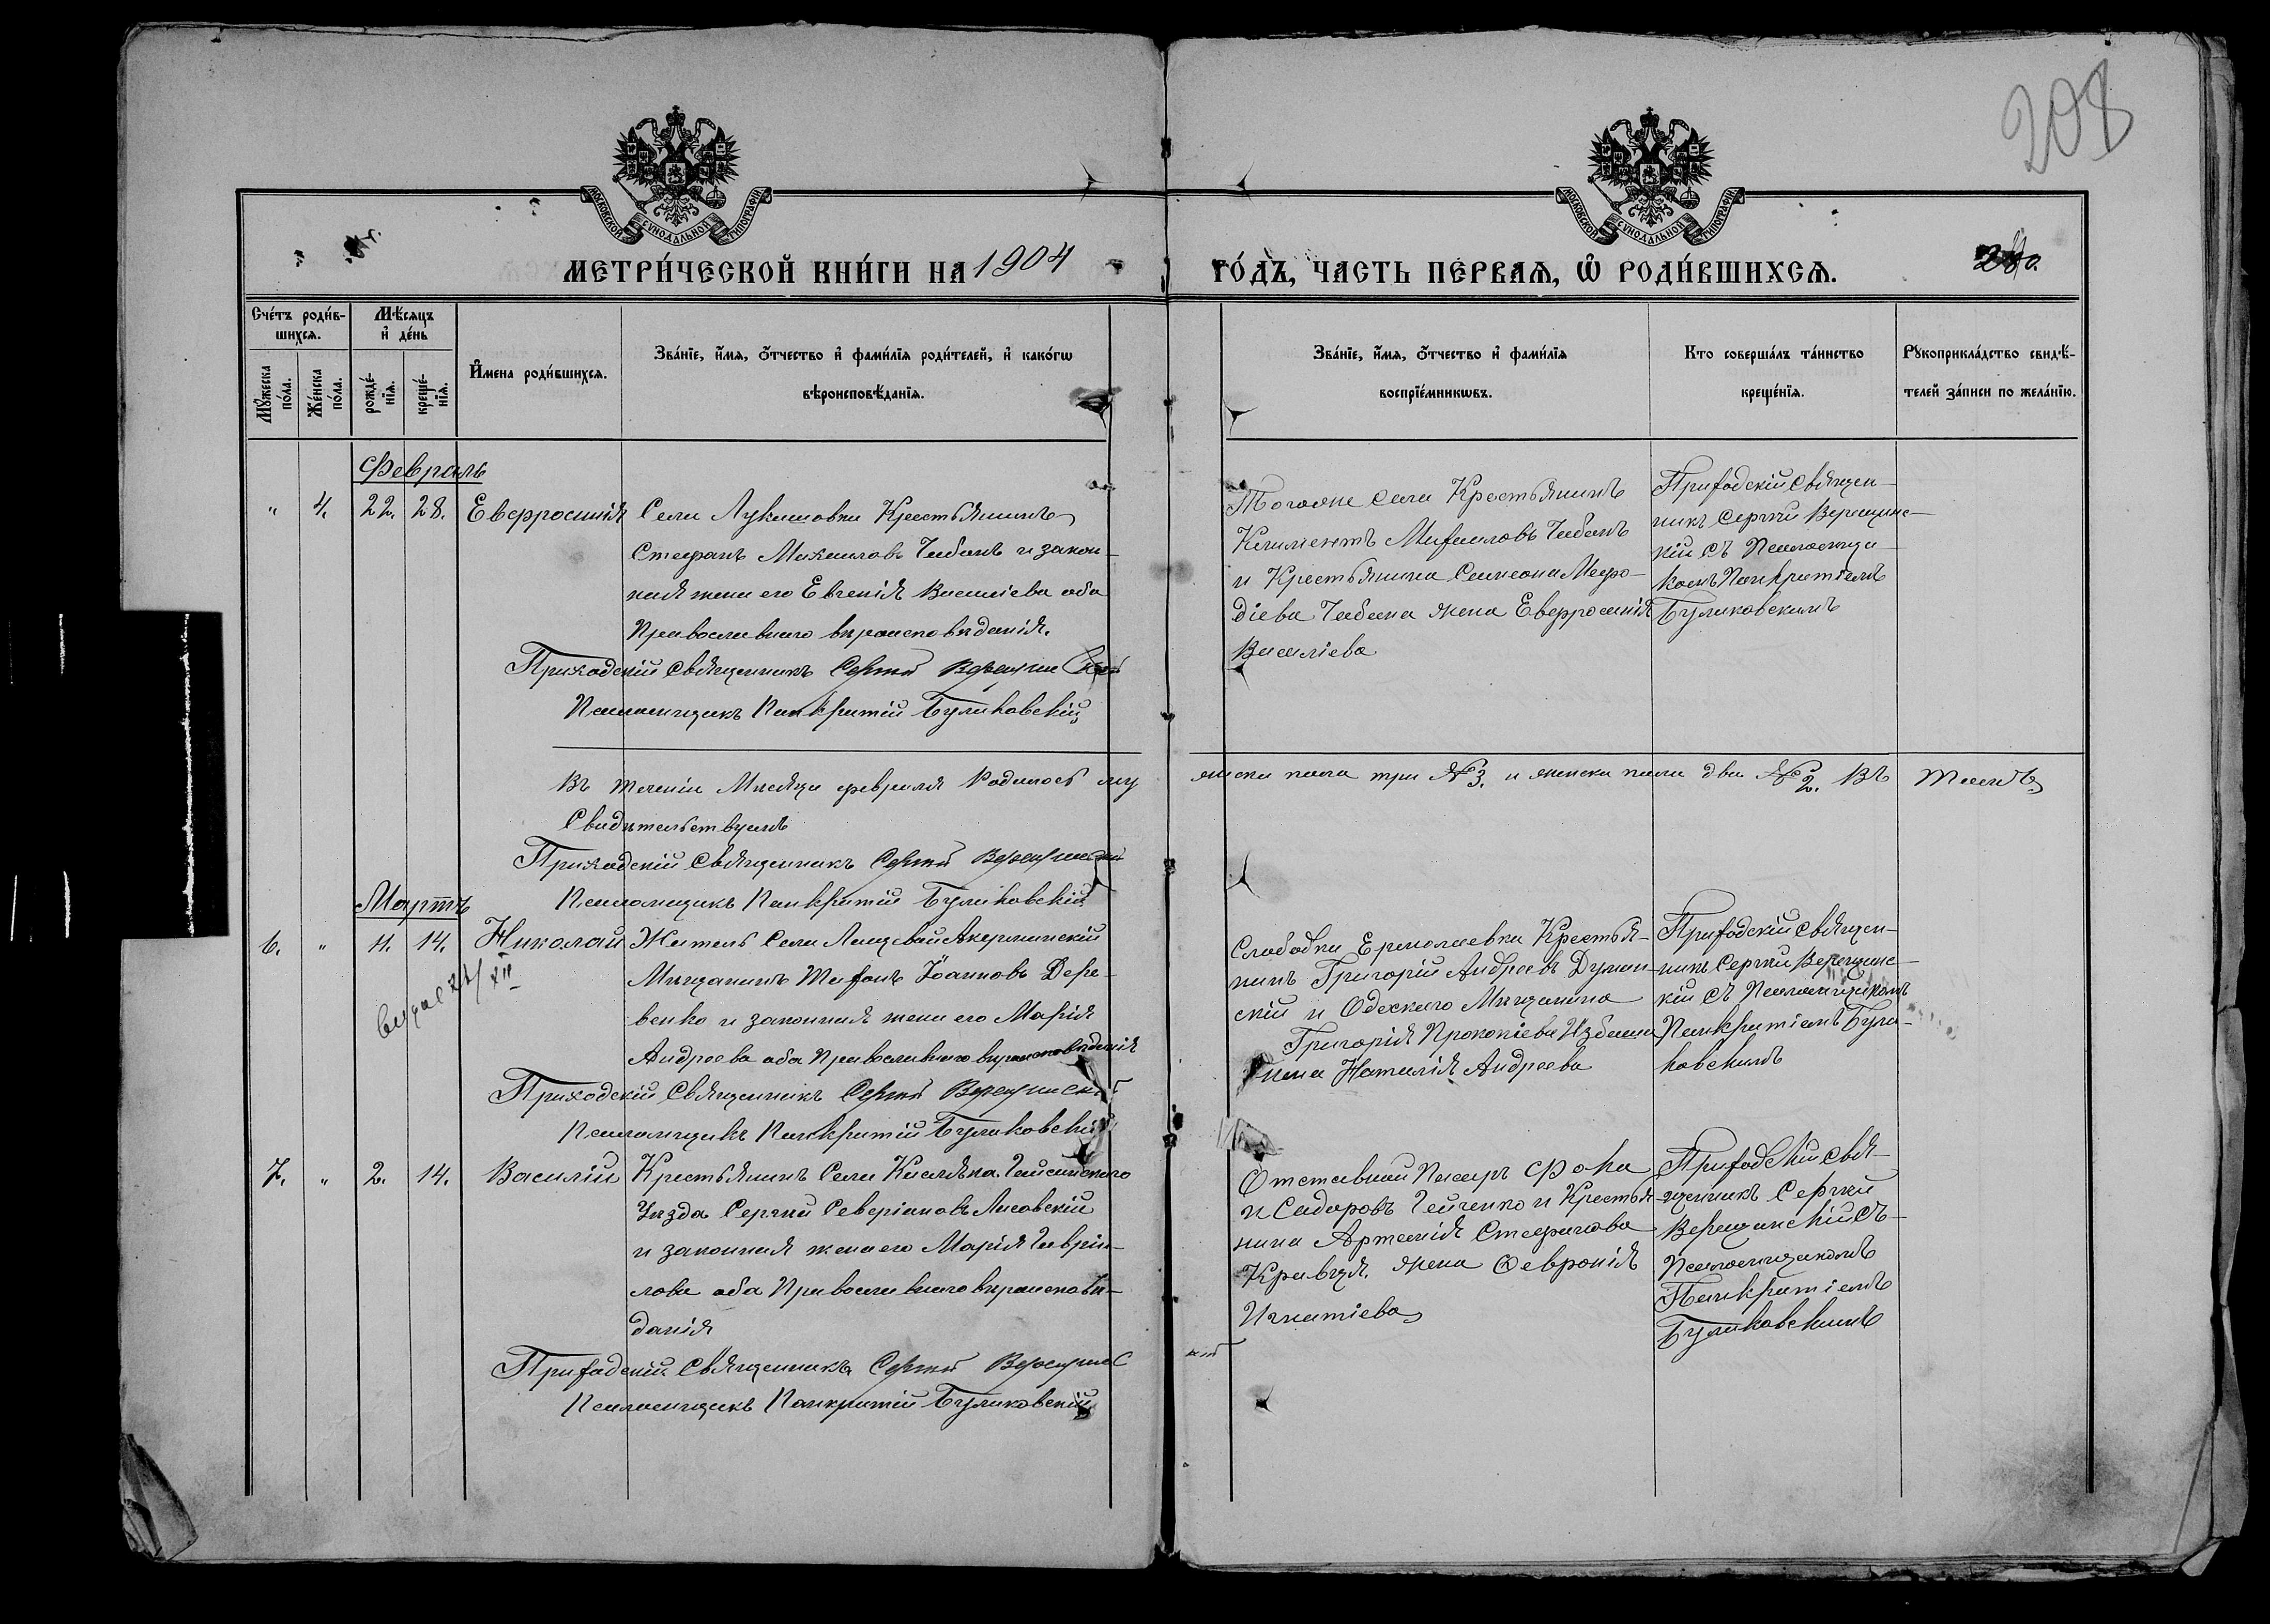 208
МОСКОВСКОЙ СѴНОДАЛЬНОЙ ТИПОГРАФІИ
МОСКОВСКОЙ СѴНОДАЛЬНОЙ ТИПОГРАФІИ
МЕТРИ́ЧЕСКОЙ КНИ́ГИ НА 1904
ГО́ДЪ, ЧАСТЬ ПЕ́РВАЯ, Ѽ РОДИ́ВШИХСЯ.
Сче́тъ роди́в-
шихся.
Мѣ́сяцъ
и҆ де́нь
Мꙋ́жеска
по́ла.
Же́нска
по́ла.
рожде́-
нїя.
креще́-
нїя.
И҆мена роди́вшихся.
Зва́нїе, и҆́мя, ѻ҆́тчество и҆ фами́лїя роди́телей, и҆ како́гѡ
вѣроисповѣ́данїя.
Зва́нїе, и҆́мя, ѻ҆́тчество и҆ фами́лїя
воспрїе́мникѡвъ.
Кто соверша́лъ та́инство
креще́нїя.
Рꙋкоприкла́дство свидѣ́-
телей за́писи по жела́нїю.
Февраль
" 4. 22. 28. Евфросинія
Села Лукашовки Крестьянинъ
Стефанъ Михаиловъ Чабанъ и закон-
ная жена его Евгенія Василіева оба
Православнаго вѣроисповѣданія.
Приходскій Священникъ Сергій Верещинскій
Псаломщикъ Панкратій Буликовскій
Тогоже села Крестьянинъ
Климентъ Михаиловъ Чабанъ
и Крестьянина Симеона Мефо-
діева Чабана жена Евфросинія
Василіева
Приходскій Священ-
никъ Сергій Верещинс-
кій съ Псаломщи-
комъ Панкратіемъ
Буликовскимъ
Въ теченіи Мѣсяца февраля Родилось му
жеска пола три №3. и женска пола два №2. Въ томъ
Свидѣтельствуемъ
Приходскій Священникъ Сергій Верещинскій
Псаломщикъ Панкратій Буликовскій
Мартъ
6. " 11. 14. Николай
Житель Села Акерманскій
Мѣщанинъ Іоанновъ Дере-
венко и законная жена его Марія
Андреева оба Православнаго вѣроисповѣданія
Приходскій Священникъ Сергій Верещинскій
Псаломщикъ Панкратій Буликовскій
Слободки Ермолаевки Крестья-
нинъ Григорій Андреевъ
скій и Одескаго Мѣщанина
Григорія Прокопіева
жена Наталія Андреева
Приходскій Священ-
никъ Сергій Верещинс-
кій съ Псаломщикомъ
Панкратіемъ Були-
ковскимъ
7. " 2. 14. Василій
Крестьянинъ Села Кисляка Гайсинскаго
Уѣзда Сергій Северіановъ Лисовскій
и законная жена его Марія Гаврии-
лова оба Православнаго вѣроисповѣ-
данія
Приходскій Священникъ Сергій Верещинс
кій
Псаломщикъ Панкратій Буликовскій
Отставной Писарь Фока
Сидоровъ Гейченко и Крестья-
нина Артемія Стефанова
Кравця. жена Февронія
Игнатіева
Приходскій Свя-
щенникъ Сергій
Верещинскій съ
Псаломщикомъ
Панкратіемъ
Буликовскимъ